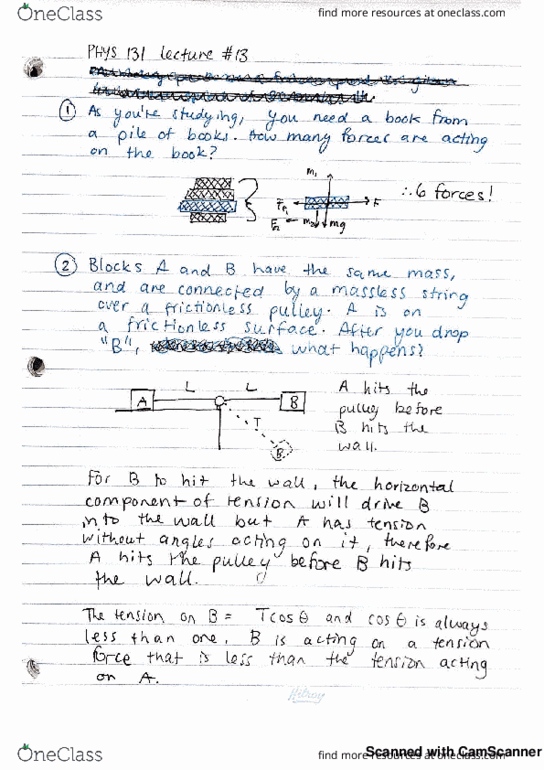 OneClass
find more resources at oneclass.com
PHYS 131 lecture #13
① As you're studying, you need a book from
a pile of books. How many forces are acting
on the book?
m₁
F
F
m₂
mg
∴ 6 forces!
② Blocks A and B have the same mass,
and are connected by a massless string
over a frictionless pulley. A is on
a frictionless surface. After you drop
"B", what happens?
L
L
A
B
T
B
A hits the
pulley before
B hits the
wall.
For B to hit the wall, the horizontal
component of tension will drive B
into the wall but A has tension
without angles acting on it, therefore
A hits the pulley before B hits
the wall.
The tension on B = Tcosθ and cosθ is always
less than one. B is acting on a tension
force that is less than the tension acting
on A.
OneClass
find more resources at oneclass.com
Scanned with CamScanner